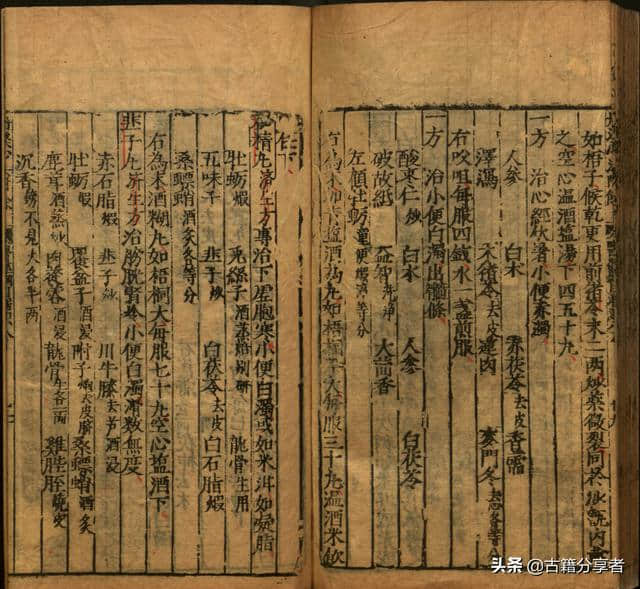 如梧子候乾更用前猪苓末二兩炒藥微裂同入瓶內
之空心溫酒塩湯下四五十九
一方 治心經伏暑小便赤濁
人參 白术 赤茯苓去皮 香薷
澤瀉 木猪苓去皮 蓮肉 麥門冬去心各等分
右㕮咀每服四錢水一盞煎服
一方 治小便白濁出髓條
酸棗仁炒 白术 人參 白茯苓
破故紙 益智 大茴香
左顧牡蠣童便煅各等分
右為末 塩酒為丸如梧桐子大每服三十丸溫酒米飲
秘精丸濟生方專治下虛胞寒小便白濁或如米泔如凝脂
牡蠣煅 兔絲子酒蒸焙別研 龍骨生用
五味子 韭子炒 白茯苓去皮 白石脂煅
桑螵蛸酒炙各等分
右為末酒糊丸如梧桐大每服七十丸空心塩酒下
韭子丸濟生方治膀胱腎冷小便白濁滑數無度
赤石脂煅 韭子炒 川牛膝去芦酒浸
牡蠣煅 覆盆子酒浸 附子炮去皮臍 桑螵蛸酒炙
鹿茸酒蒸炒 肉蓯蓉酒浸 龍骨生各一兩 雞膍胵
沉香鎊不見火各半兩
頭條 @古籍分享者